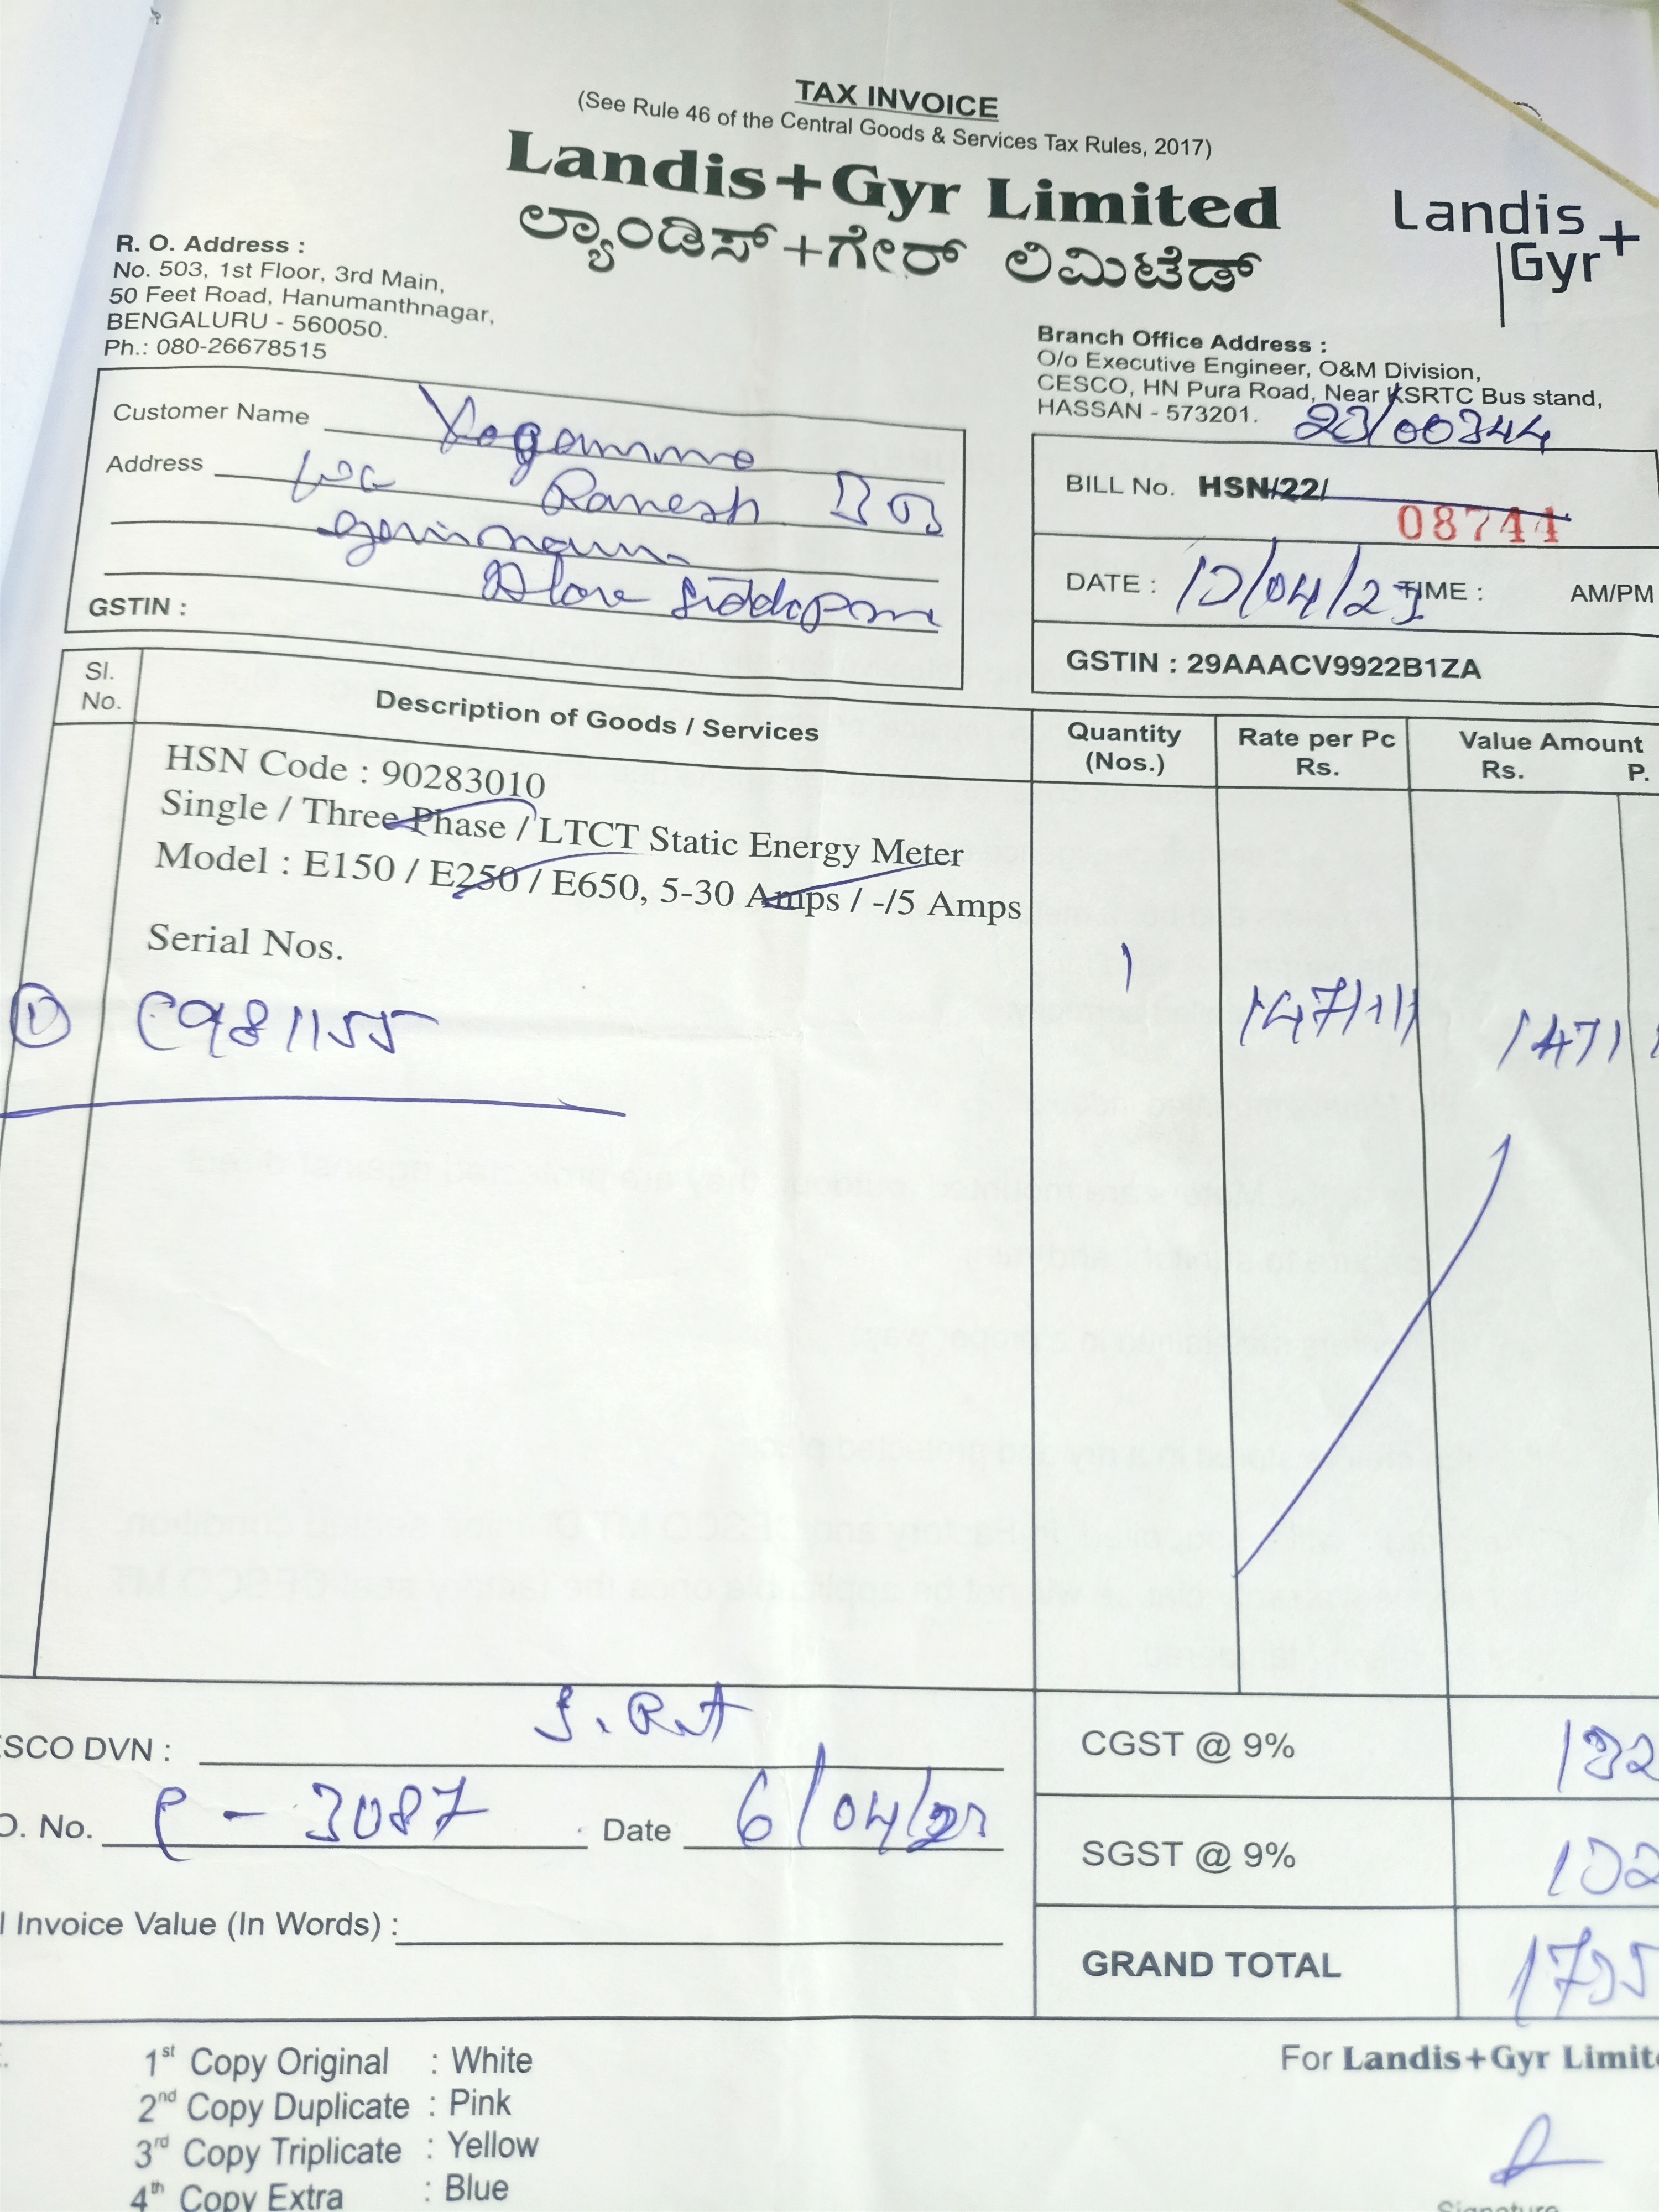 TAX INVOICE
(See Rule 46 of the Central Goods & Services Tax Rules, 2017)
Landis+Gyr Limited
ಲ್ಯಾಂಡಿಸ್+ಗೇರ್ ಲಿಮಿಟೆಡ್
Landis
Gyr
R. O. Address :
No. 503, 1st Floor, 3rd Main,
50 Feet Road, Hanumanthnagar,
BENGALURU - 560050.
Ph.: 080-26678515
Branch Office Address :
O/o Executive Engineer, O&M Division,
CESCO, HN Pura Road, Near KSRTC Bus stand,
HASSAN - 573201.
23/00344
Customer Name
Address
Ramesh
GSTIN :
BILL No. HSN/22/
08744
DATE : 10/04/23 TIME : AM/PM
GSTIN : 29AAACV9922B1ZA
Sl. No.
Description of Goods / Services
Quantity (Nos.)
Rate per Pc Rs.
Value Amount Rs. P.
HSN Code : 90283010
Single / Three Phase / LTCT Static Energy Meter
Model : E150 / E250 / E650, 5-30 Amps / -/5 Amps
Serial Nos.
1 C981155 1 1471
SCO DVN :
O. No. C - 3087 Date 6/04/23
l Invoice Value (In Words) :
CGST @ 9% 132
SGST @ 9% 132
GRAND TOTAL 1735
1st Copy Original : White
2nd Copy Duplicate : Pink
3rd Copy Triplicate : Yellow
4th Copy Extra : Blue
For Landis+Gyr Limite
Signature